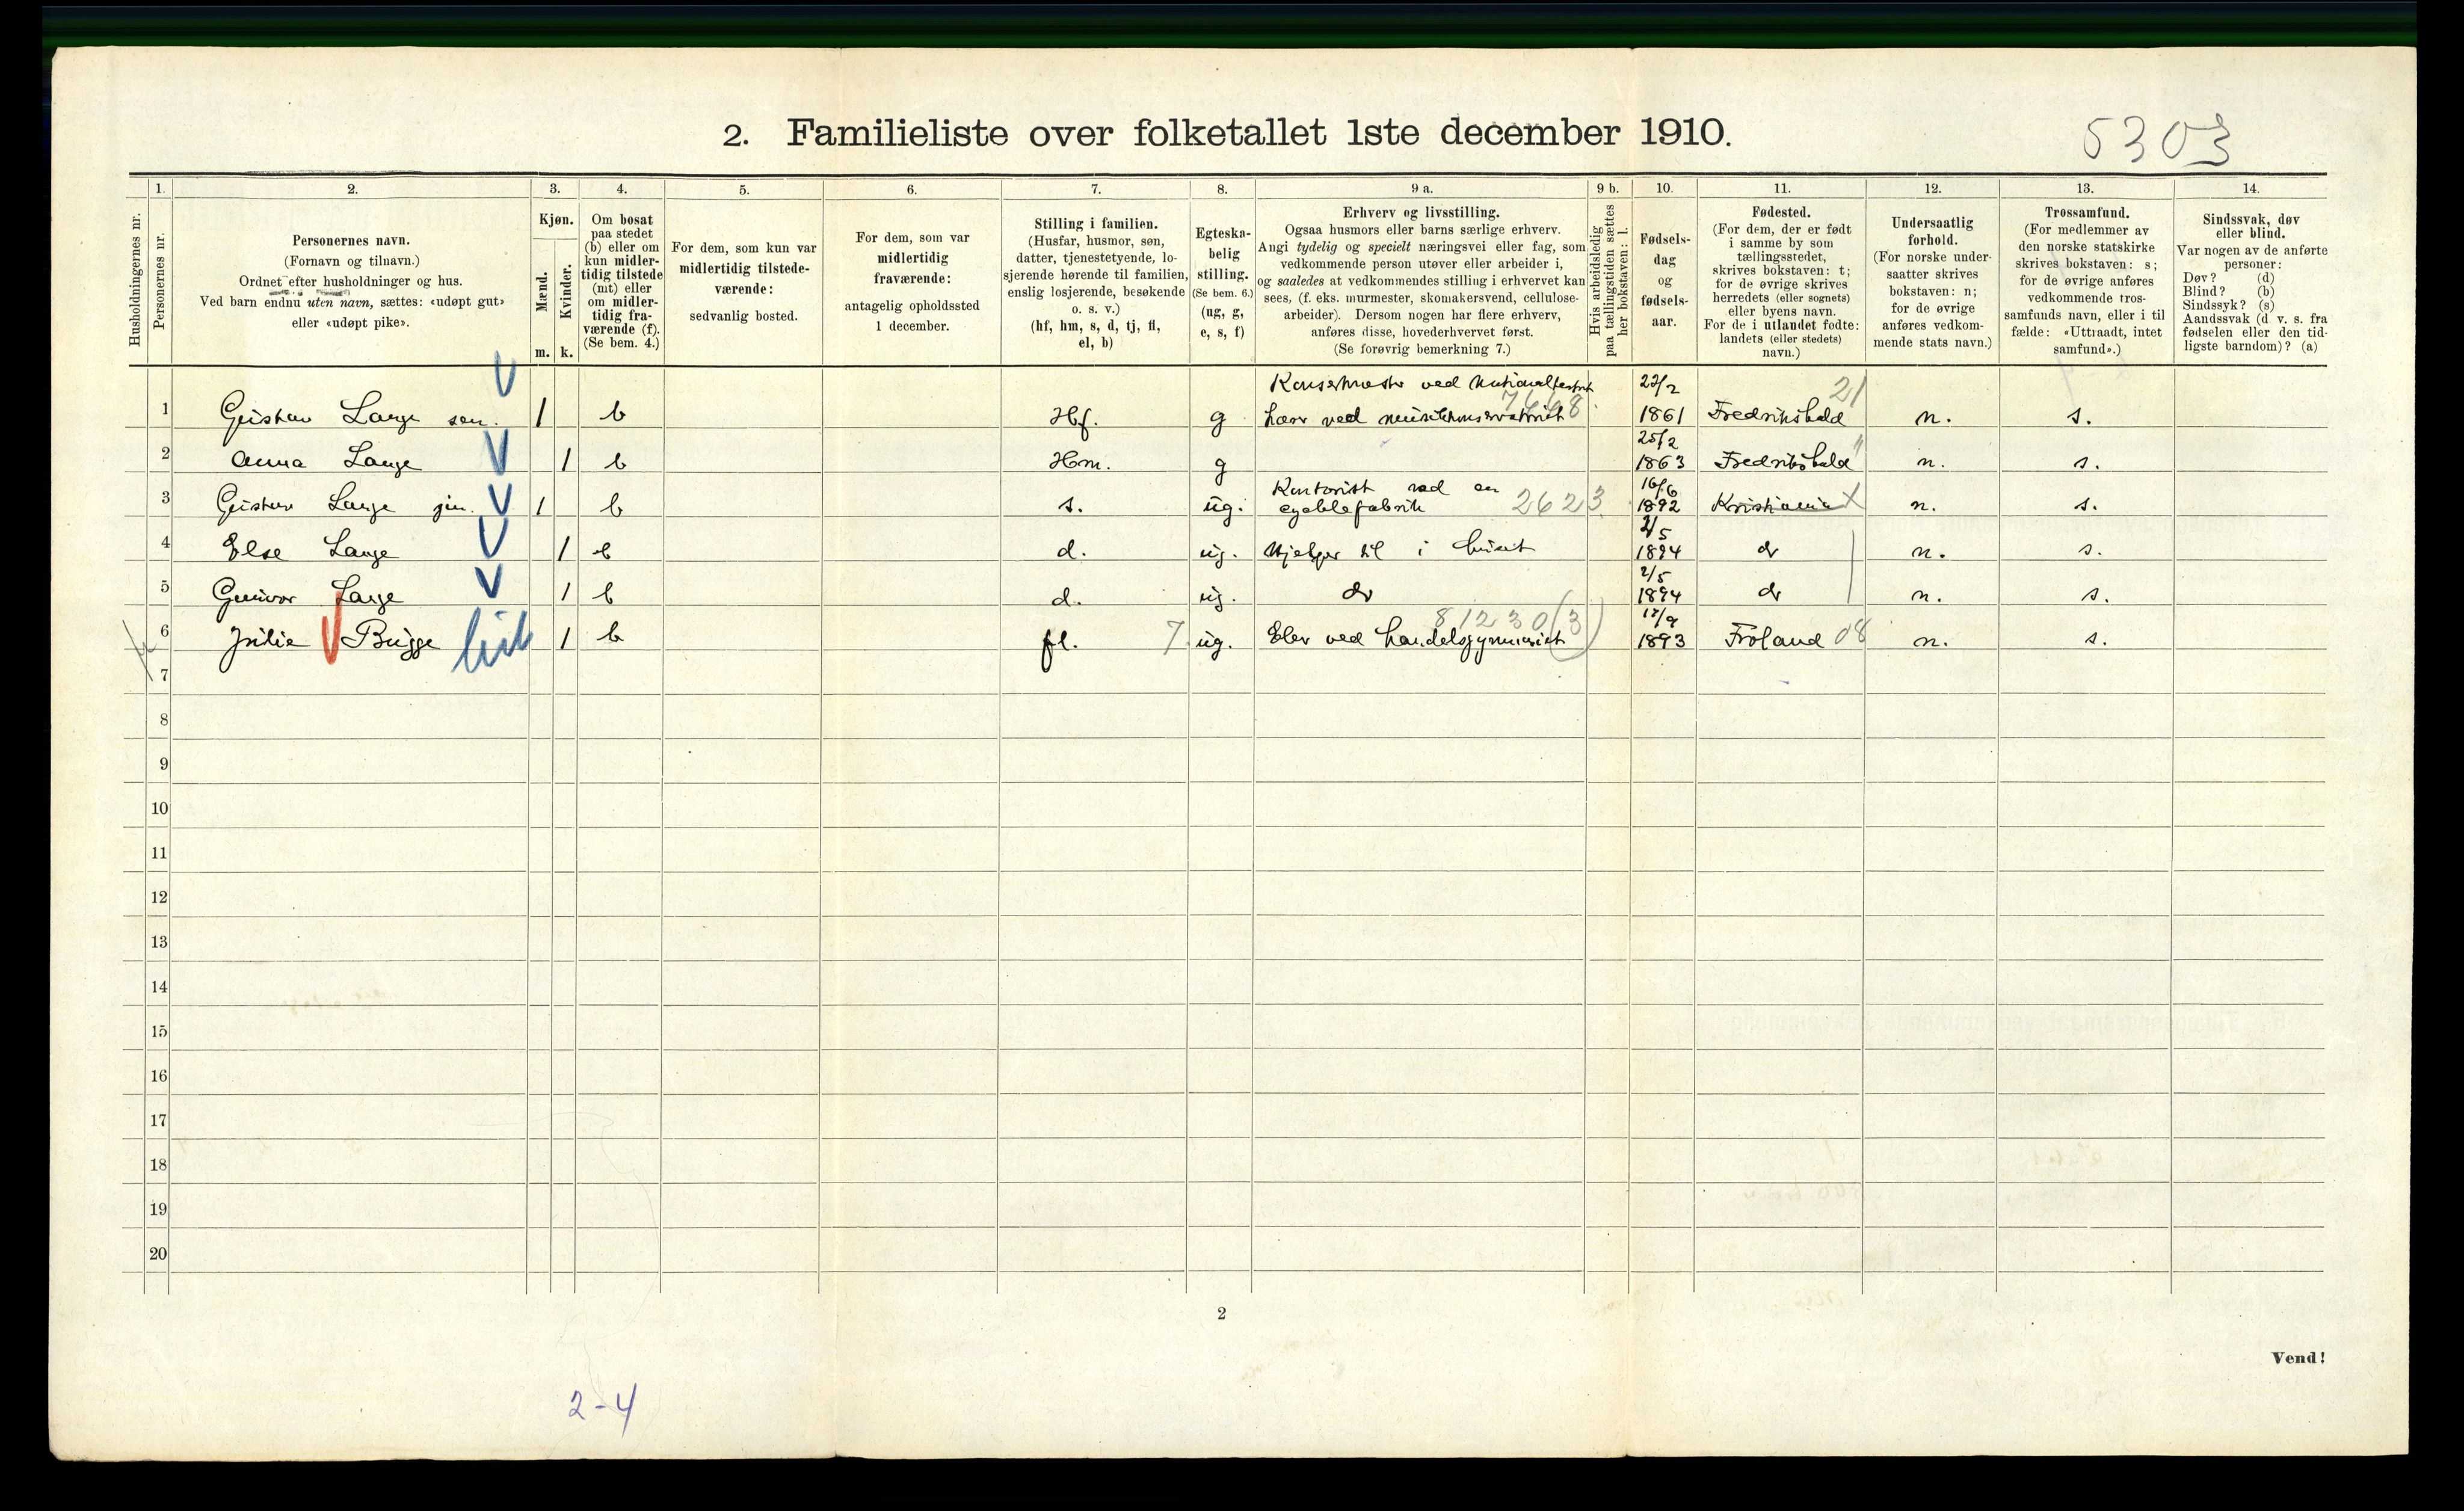 2. Familieliste over folketallet 1ste december 1910.
5303
Husholdningernes nr.
1.
Personernes nr.
2.
Personernes navn.
(Fornavn og tilnavn.)
Ordnet efter husholdninger og hus.
Ved barn endnu uten navn, sættes: «udøpt gut»
eller «udøpt pike».
3.
Kjøn.
Mænd.
Kvinder.
m. k.
4.
Om bosat
paa stedet
(b) eller om
kun midler-
tidig tilstede
(mt) eller
om midler-
tidig fra-
værende (f).
(Se bem. 4.)
5.
For dem, som kun var
midlertidig tilstede-
værende:
sedvanlig bosted.
6.
For dem, som var
midlertidig
fraværende:
antagelig opholdssted
1 december.
7.
Stilling i familien.
(Husfar, husmor, søn,
datter, tjenestetyende, lo-
sjerende hørende til familien,
enslig losjerende, besøkende
o. s. v.)
(hf, hm, s, d, tj, fl,
el, b)
8.
Egteska-
belig
stilling.
(Se bem. 6.)
(ug, g,
e, s, f)
9 a.
Erhverv og livsstilling.
Ogsaa husmors eller barns særlige erhverv.
Angi tydelig og specielt næringsvei eller fag, som
vedkommende person utøver eller arbeider i,
og saaledes at vedkommendes stilling i erhvervet kan
sees, (f. eks. murmester, skomakersvend, cellulose-
arbeider). Dersom nogen har flere erhverv,
anføres disse, hovederhvervet først.
(Se forøvrig bemerkning 7.)
9 b.
Hvis arbeidsledig
paa tællingstiden sættes
her bokstaven: l.
10.
Fødsels-
dag
og
fødsels-
aar.
11.
Fødested.
(For dem, der er født
i samme by som
tællingsstedet,
skrives bokstaven: t;
for de øvrige skrives
herredets (eller sognets)
eller byens navn.
For de i utlandet fødte:
landets (eller stedets)
navn.)
12.
Undersaatlig
forhold.
(For norske under-
saatter skrives
bokstaven: n;
for de øvrige
anføres vedkom-
mende stats navn.)
13.
Trossamfund.
(For medlemmer av
den norske statskirke
skrives bokstaven: s;
for de øvrige anføres
vedkommende tros-
samfunds navn, eller i til
fælde: «Uttraadt, intet
samfund».)
14.
Sindssvak, døv
eller blind.
Var nogen av de anførte
personer:
Døv? (d)
Blind? (b)
Sindssyk? (s)
Aandssvak (d v. s. fra
fødselen eller den tid-
ligste barndom)? (a)
1 Gustav Lange sen. 1 b Hf. g Konsertmester ved Nationalteatret lærer ved musikkonservatoriet 1861 Fredrikshald 21 n. s.
2 Anna Lange 1 b Hm. g 25/2 1863 Fredrikshald " n. s.
3 Gustav Lange jun. 1 b s. ug. Kontorist ved en cyclefabrik 2623 16/6 1892 Kristiania n. s.
4 Else Lange 1 b d. ug. Hjelper til i huset 2/5 1894 do n. s.
5 Gunvor Lange 1 b d. ug. do 2/5 1894 do n. s.
6 Julie Bugge 1 b fl. 7 ug. Elev ved handelsgymnasiet 81230(3) 1893 Froland 08 n. s.
7
8
9
10
11
12
13
14
15
16
17
18
19
20
2
Vend!
2-4